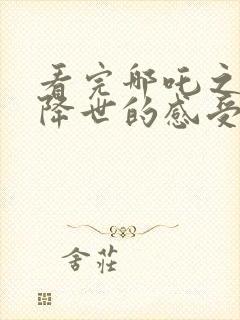 看完哪吒之
降世的感受
舍莊